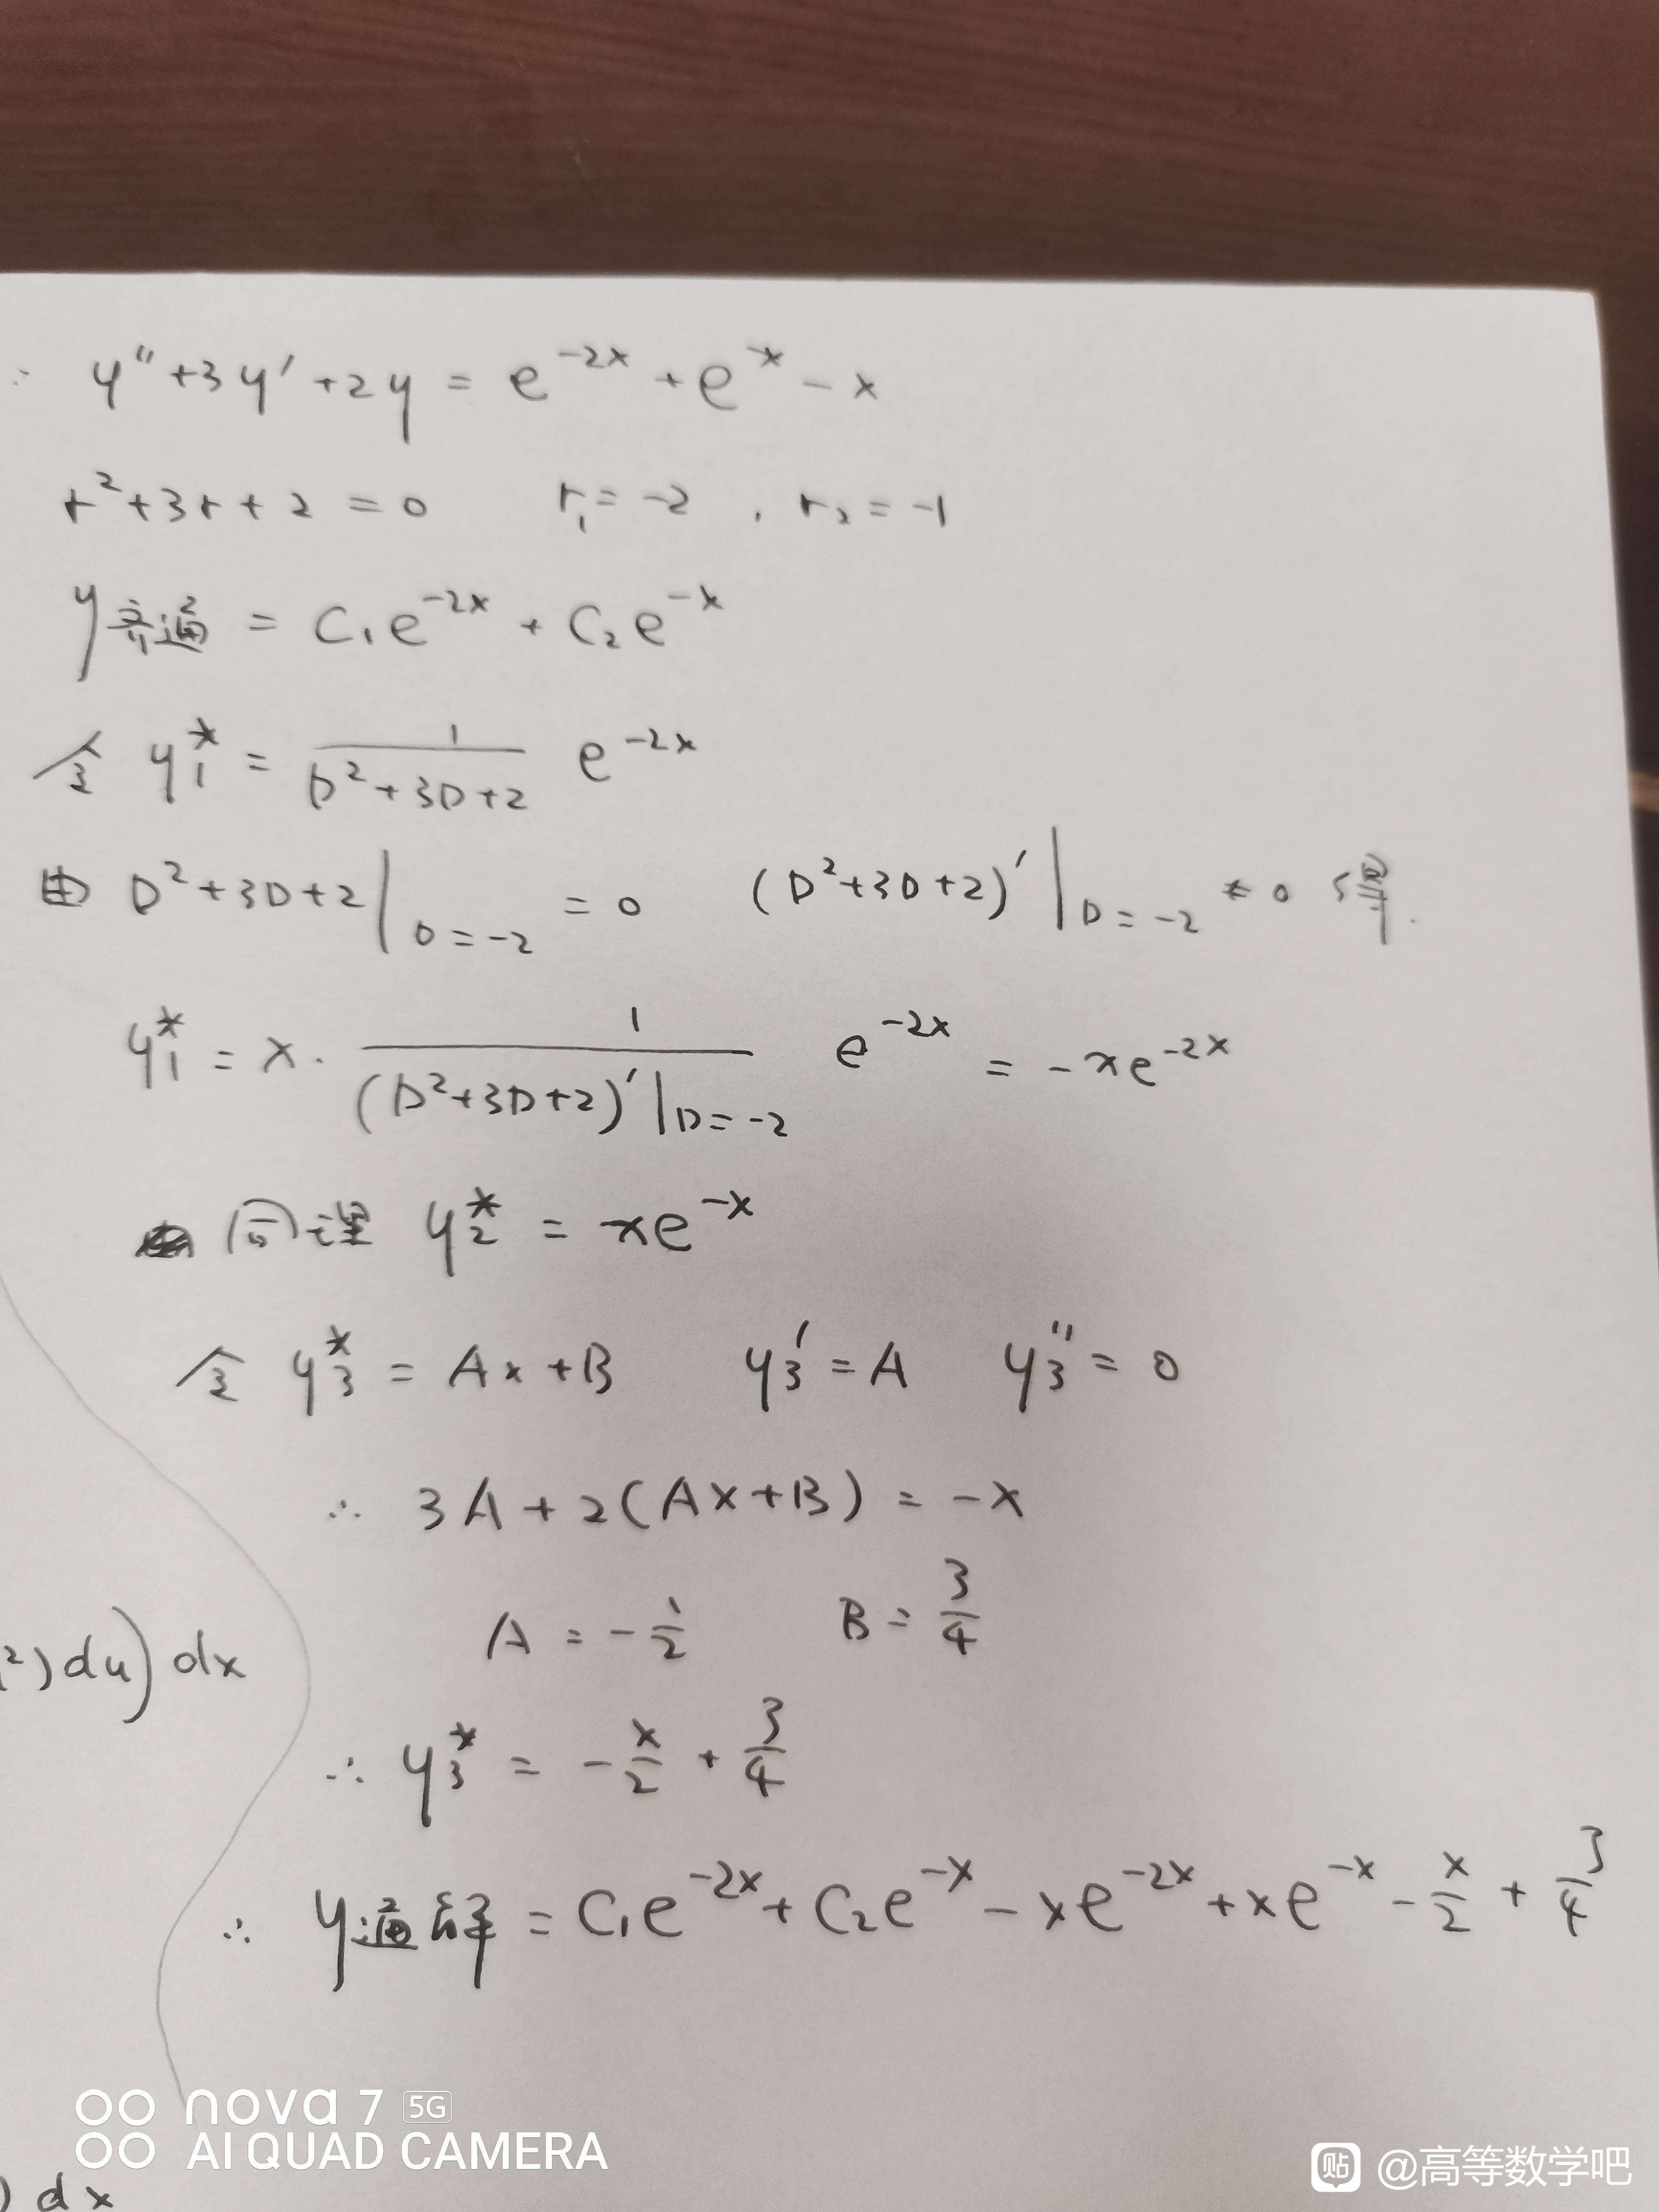 ∴ y''+3y'+2y = e^{-2x}+e^{-x}-x
r²+3r+2=0 r₁=-2 , r₂=-1
y齐通 = C₁e^{-2x}+C₂e^{-x}
令 y₁* = \frac{1}{D²+3D+2} e^{-2x}
由 D²+3D+2|_{D=-2} =0 (D²+3D+2)'|_{D=-2} ≠0 得.
y₁* = x· \frac{1}{(D²+3D+2)'|_{D=-2}} e^{-2x} = -xe^{-2x}
同理 y₂* = xe^{-x}
令 y₃* = Ax+B y₃'=A y₃''=0
∴ 3A+2(Ax+B) = -x
A = -\frac{1}{2} B = \frac{3}{4}
²)du)dx
∴ y₃* = -\frac{x}{2} + \frac{3}{4}
∴ y通解 = C₁e^{-2x}+C₂e^{-x}-xe^{-2x}+xe^{-x}-\frac{x}{2}+\frac{3}{4}
nova 7 5G
AI QUAD CAMERA
贴 @高等数学吧
) dx